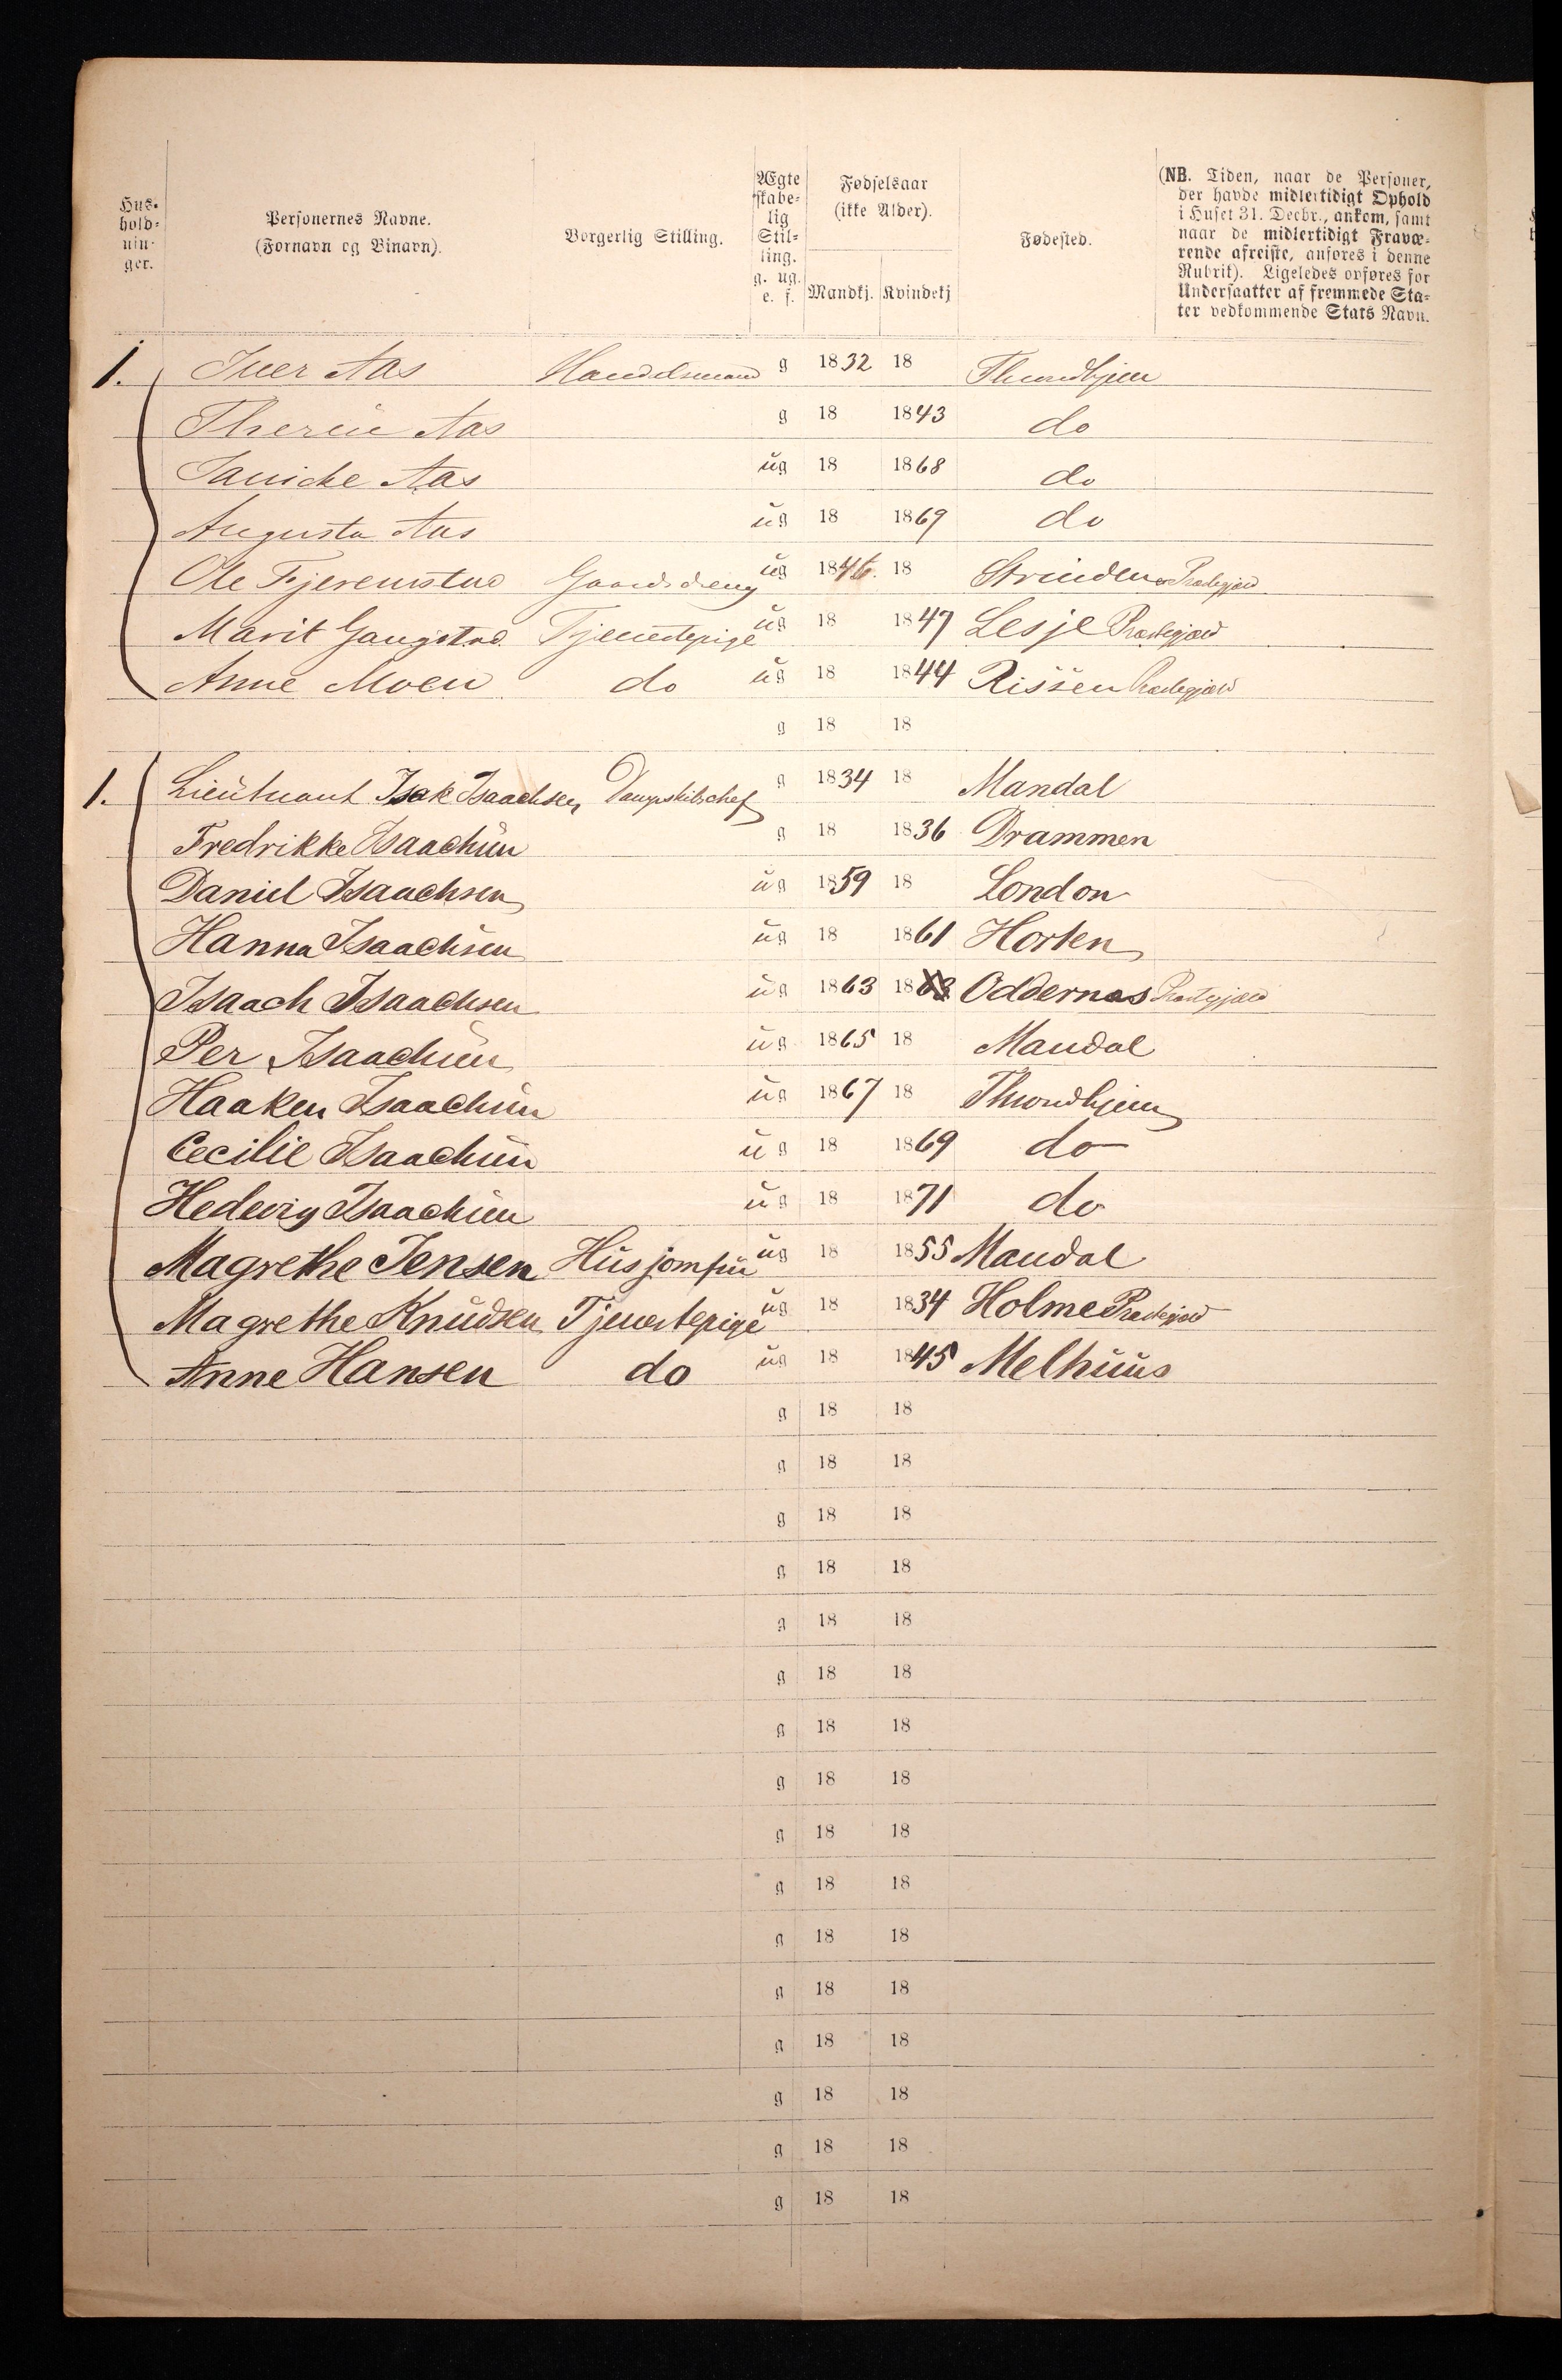 Hus-
hold-
nin-
ger.
Personernes Navne.
(Fornavn og Binavn).
Borgerlig Stilling.
Ægte
skabe-
lig
Stil-
ling.
g. ug.
e. f.
Fødselsaar
(ikke Alder).
Mandkj. Kvindekj
Fødested.
(NB. Tiden, naar de Personer,
der havde midlertidigt Ophold
i Huset 31. Decbr., ankom, samt
naar de midlertidigt Fravæ-
rende afreiste, anføres i denne
Rubrik). Ligeledes opføres for
Undersaatter af fremmede Sta-
ter vedkommende Stats Navn.
1. Iver Aas Handelsmand g 1832 18 Throndhjem
Therese Aas g 18 1843 do
Janicke Aas ug 18 1868 do
Augusta Aas ug 18 1869 do
Ole Fjeremstad Gaardsdreng ug 1846. 18 Strinden Præstegjæld
Marit Gaugstad Tjenestepige ug 18 1847 Lesje Præstegjæld
Anne Moen do ug 18 1844 Rissen Præstegjæld
g 18 18
1. Lieutnant Isak Isaachsen Dampskibschef g 1834 18 Mandal
Fredrikke Isaachsen g 18 1836 Drammen
Daniel Isaachsen ug 1859 18 London
Hanna Isaachsen ug 18 1861 Horten
Isaach Isaachsen ug 1863 1863 Oddernes Præstegjæld
Per Isaachsen ug 1865 18 Mandal
Haaken Isaachsen ug 1867 18 Throndhjem
Cecilie Isaachsen ug 18 1869 do
Hedevig Isaachsen ug 18 1871 do
Magrethe Jensen Husjomfru ug 18 1855 Mandal
Magrethe Knudsen Tjenestepige ug 18 1834 Holme Præstegjæld
Anne Hansen do ug 18 1845 Melhuus
g 18 18
g 18 18
g 18 18
g 18 18
g 18 18
g 18 18
g 18 18
g 18 18
g 18 18
g 18 18
g 18 18
g 18 18
g 18 18
g 18 18
g 18 18
g 18 18